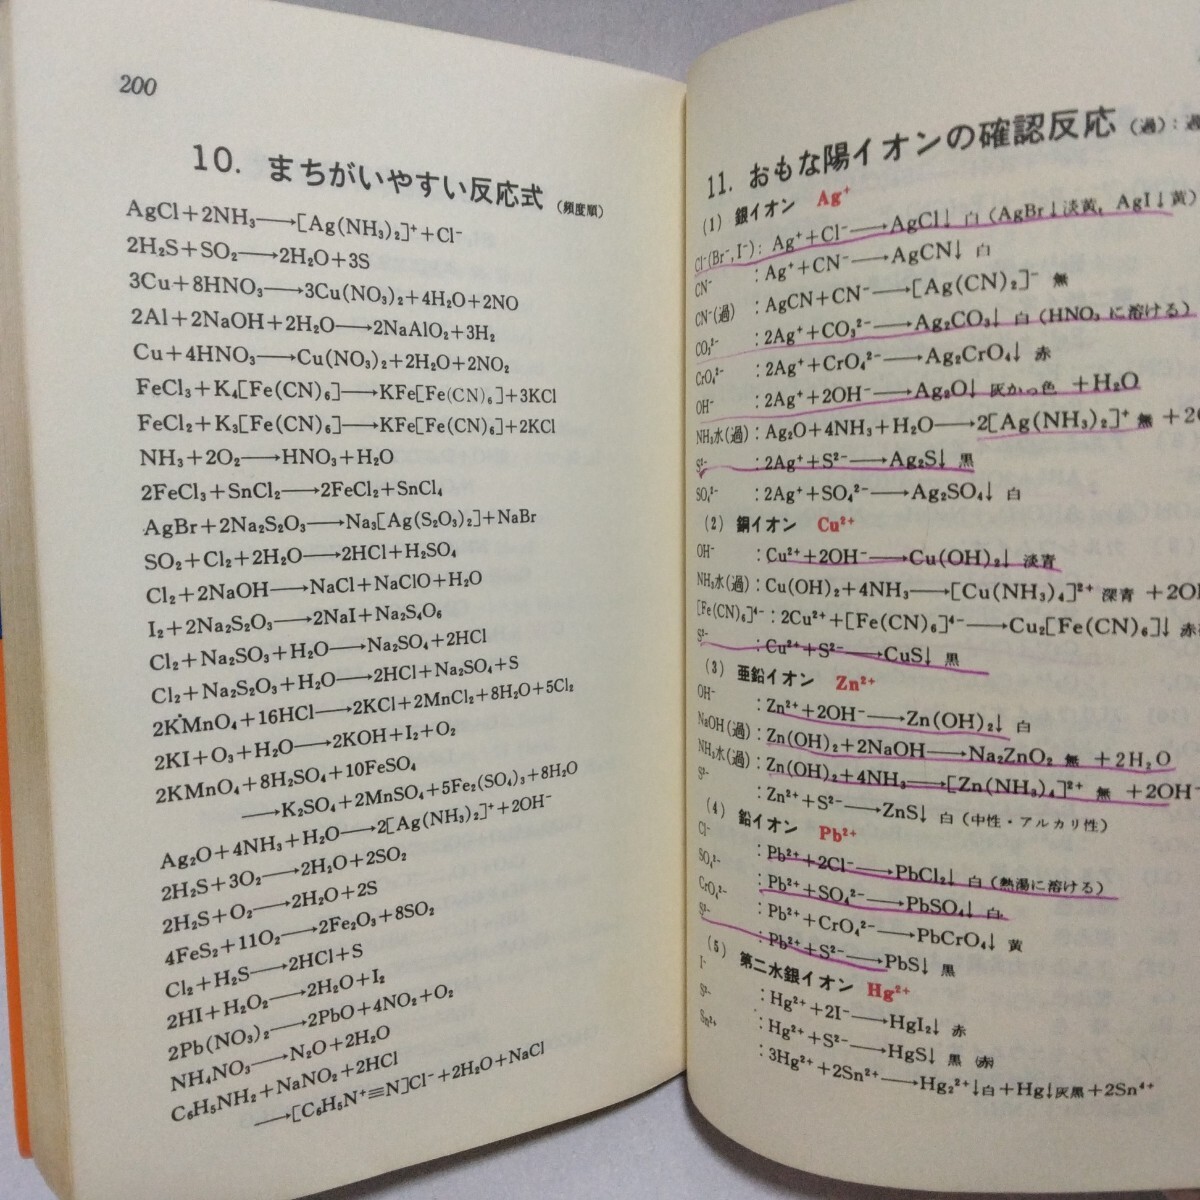 200
10. まちがいやすい反応式 (頻度順)
AgCl+2NH₃⟶[Ag(NH₃)₂]⁺+Cl⁻
2H₂S+SO₂⟶2H₂O+3S
3Cu+8HNO₃⟶3Cu(NO₃)₂+4H₂O+2NO
2Al+2NaOH+2H₂O⟶2NaAlO₂+3H₂
Cu+4HNO₃⟶Cu(NO₃)₂+2H₂O+2NO₂
FeCl₃+K₄[Fe(CN)₆]⟶KFe[Fe(CN)₆]+3KCl
FeCl₂+K₃[Fe(CN)₆]⟶KFe[Fe(CN)₆]+2KCl
NH₃+2O₂⟶HNO₃+H₂O
2FeCl₃+SnCl₂⟶2FeCl₂+SnCl₄
AgBr+2Na₂S₂O₃⟶Na₃[Ag(S₂O₃)₂]+NaBr
SO₂+Cl₂+2H₂O⟶2HCl+H₂SO₄
Cl₂+2NaOH⟶NaCl+NaClO+H₂O
I₂+2Na₂S₂O₃⟶2NaI+Na₂S₄O₆
Cl₂+Na₂SO₃+H₂O⟶Na₂SO₄+2HCl
Cl₂+Na₂S₂O₃+H₂O⟶2HCl+Na₂SO₄+S
2KMnO₄+16HCl⟶2KCl+2MnCl₂+8H₂O+5Cl₂
2KI+O₃+H₂O⟶2KOH+I₂+O₂
2KMnO₄+8H₂SO₄+10FeSO₄
⟶K₂SO₄+2MnSO₄+5Fe₂(SO₄)₃+8H₂O
Ag₂O+4NH₃+H₂O⟶2[Ag(NH₃)₂]⁺+2OH⁻
2H₂S+3O₂⟶2H₂O+2SO₂
2H₂S+O₂⟶2H₂O+2S
4FeS₂+11O₂⟶2Fe₂O₃+8SO₂
Cl₂+H₂S⟶2HCl+S
2HI+H₂O₂⟶2H₂O+I₂
2Pb(NO₃)₂⟶2PbO+4NO₂+O₂
NH₄NO₃⟶N₂O+2H₂O
C₆H₅NH₂+NaNO₂+2HCl
⟶[C₆H₅N⁺≡N]Cl⁻+2H₂O+NaCl
11. おもな陽イオンの確認反応 (過):過
(1) 銀イオン Ag⁺
Cl⁻(Br⁻,I⁻): Ag⁺+Cl⁻⟶AgCl↓ 白 (AgBr↓淡黄, AgI↓黄)
CN⁻ :Ag⁺+CN⁻⟶AgCN↓ 白
CN⁻(過) :AgCN+CN⁻⟶[Ag(CN)₂]⁻ 無
CO₃²⁻ :2Ag⁺+CO₃²⁻⟶Ag₂CO₃↓ 白 (HNO₃ に溶ける)
CrO₄²⁻ :2Ag⁺+CrO₄²⁻⟶Ag₂CrO₄↓ 赤
OH⁻ :2Ag⁺+2OH⁻⟶Ag₂O↓ 灰かっ色 +H₂O
NH₃水(過):Ag₂O+4NH₃+H₂O⟶2[Ag(NH₃)₂]⁺ 無 +2
S²⁻ :2Ag⁺+S²⁻⟶Ag₂S↓ 黒
SO₄²⁻ :2Ag⁺+SO₄²⁻⟶Ag₂SO₄↓ 白
(2) 銅イオン Cu²⁺
OH⁻ :Cu²⁺+2OH⁻⟶Cu(OH)₂↓ 淡青
NH₃水(過):Cu(OH)₂+4NH₃⟶[Cu(NH₃)₄]²⁺ 深青 +2O
[Fe(CN)₆]⁴⁻:2Cu²⁺+[Fe(CN)₆]⁴⁻⟶Cu₂[Fe(CN)₆]↓ 赤
S²⁻ :Cu²⁺+S²⁻⟶CuS↓ 黒
(3) 亜鉛イオン Zn²⁺
OH⁻ :Zn²⁺+2OH⁻⟶Zn(OH)₂↓ 白
NaOH(過):Zn(OH)₂+2NaOH⟶Na₂ZnO₂ 無 +2H₂O
NH₃水(過):Zn(OH)₂+4NH₃⟶[Zn(NH₃)₄]²⁺ 無 +2OH⁻
S²⁻ :Zn²⁺+S²⁻⟶ZnS↓ 白 (中性・アルカリ性)
(4) 鉛イオン Pb²⁺
Cl⁻ :Pb²⁺+2Cl⁻⟶PbCl₂↓ 白 (熱湯に溶ける)
SO₄²⁻ :Pb²⁺+SO₄²⁻⟶PbSO₄↓ 白
CrO₄²⁻ :Pb²⁺+CrO₄²⁻⟶PbCrO₄↓ 黄
S²⁻ :Pb²⁺+S²⁻⟶PbS↓ 黒
(5) 第二水銀イオン Hg²⁺
I⁻ :Hg²⁺+2I⁻⟶HgI₂↓ 赤
S²⁻ :Hg²⁺+S²⁻⟶HgS↓ 黒 (赤)
Sn²⁺ :3Hg²⁺+2Sn²⁺⟶Hg₂²⁺↓白+Hg↓灰黒+2Sn⁴⁺